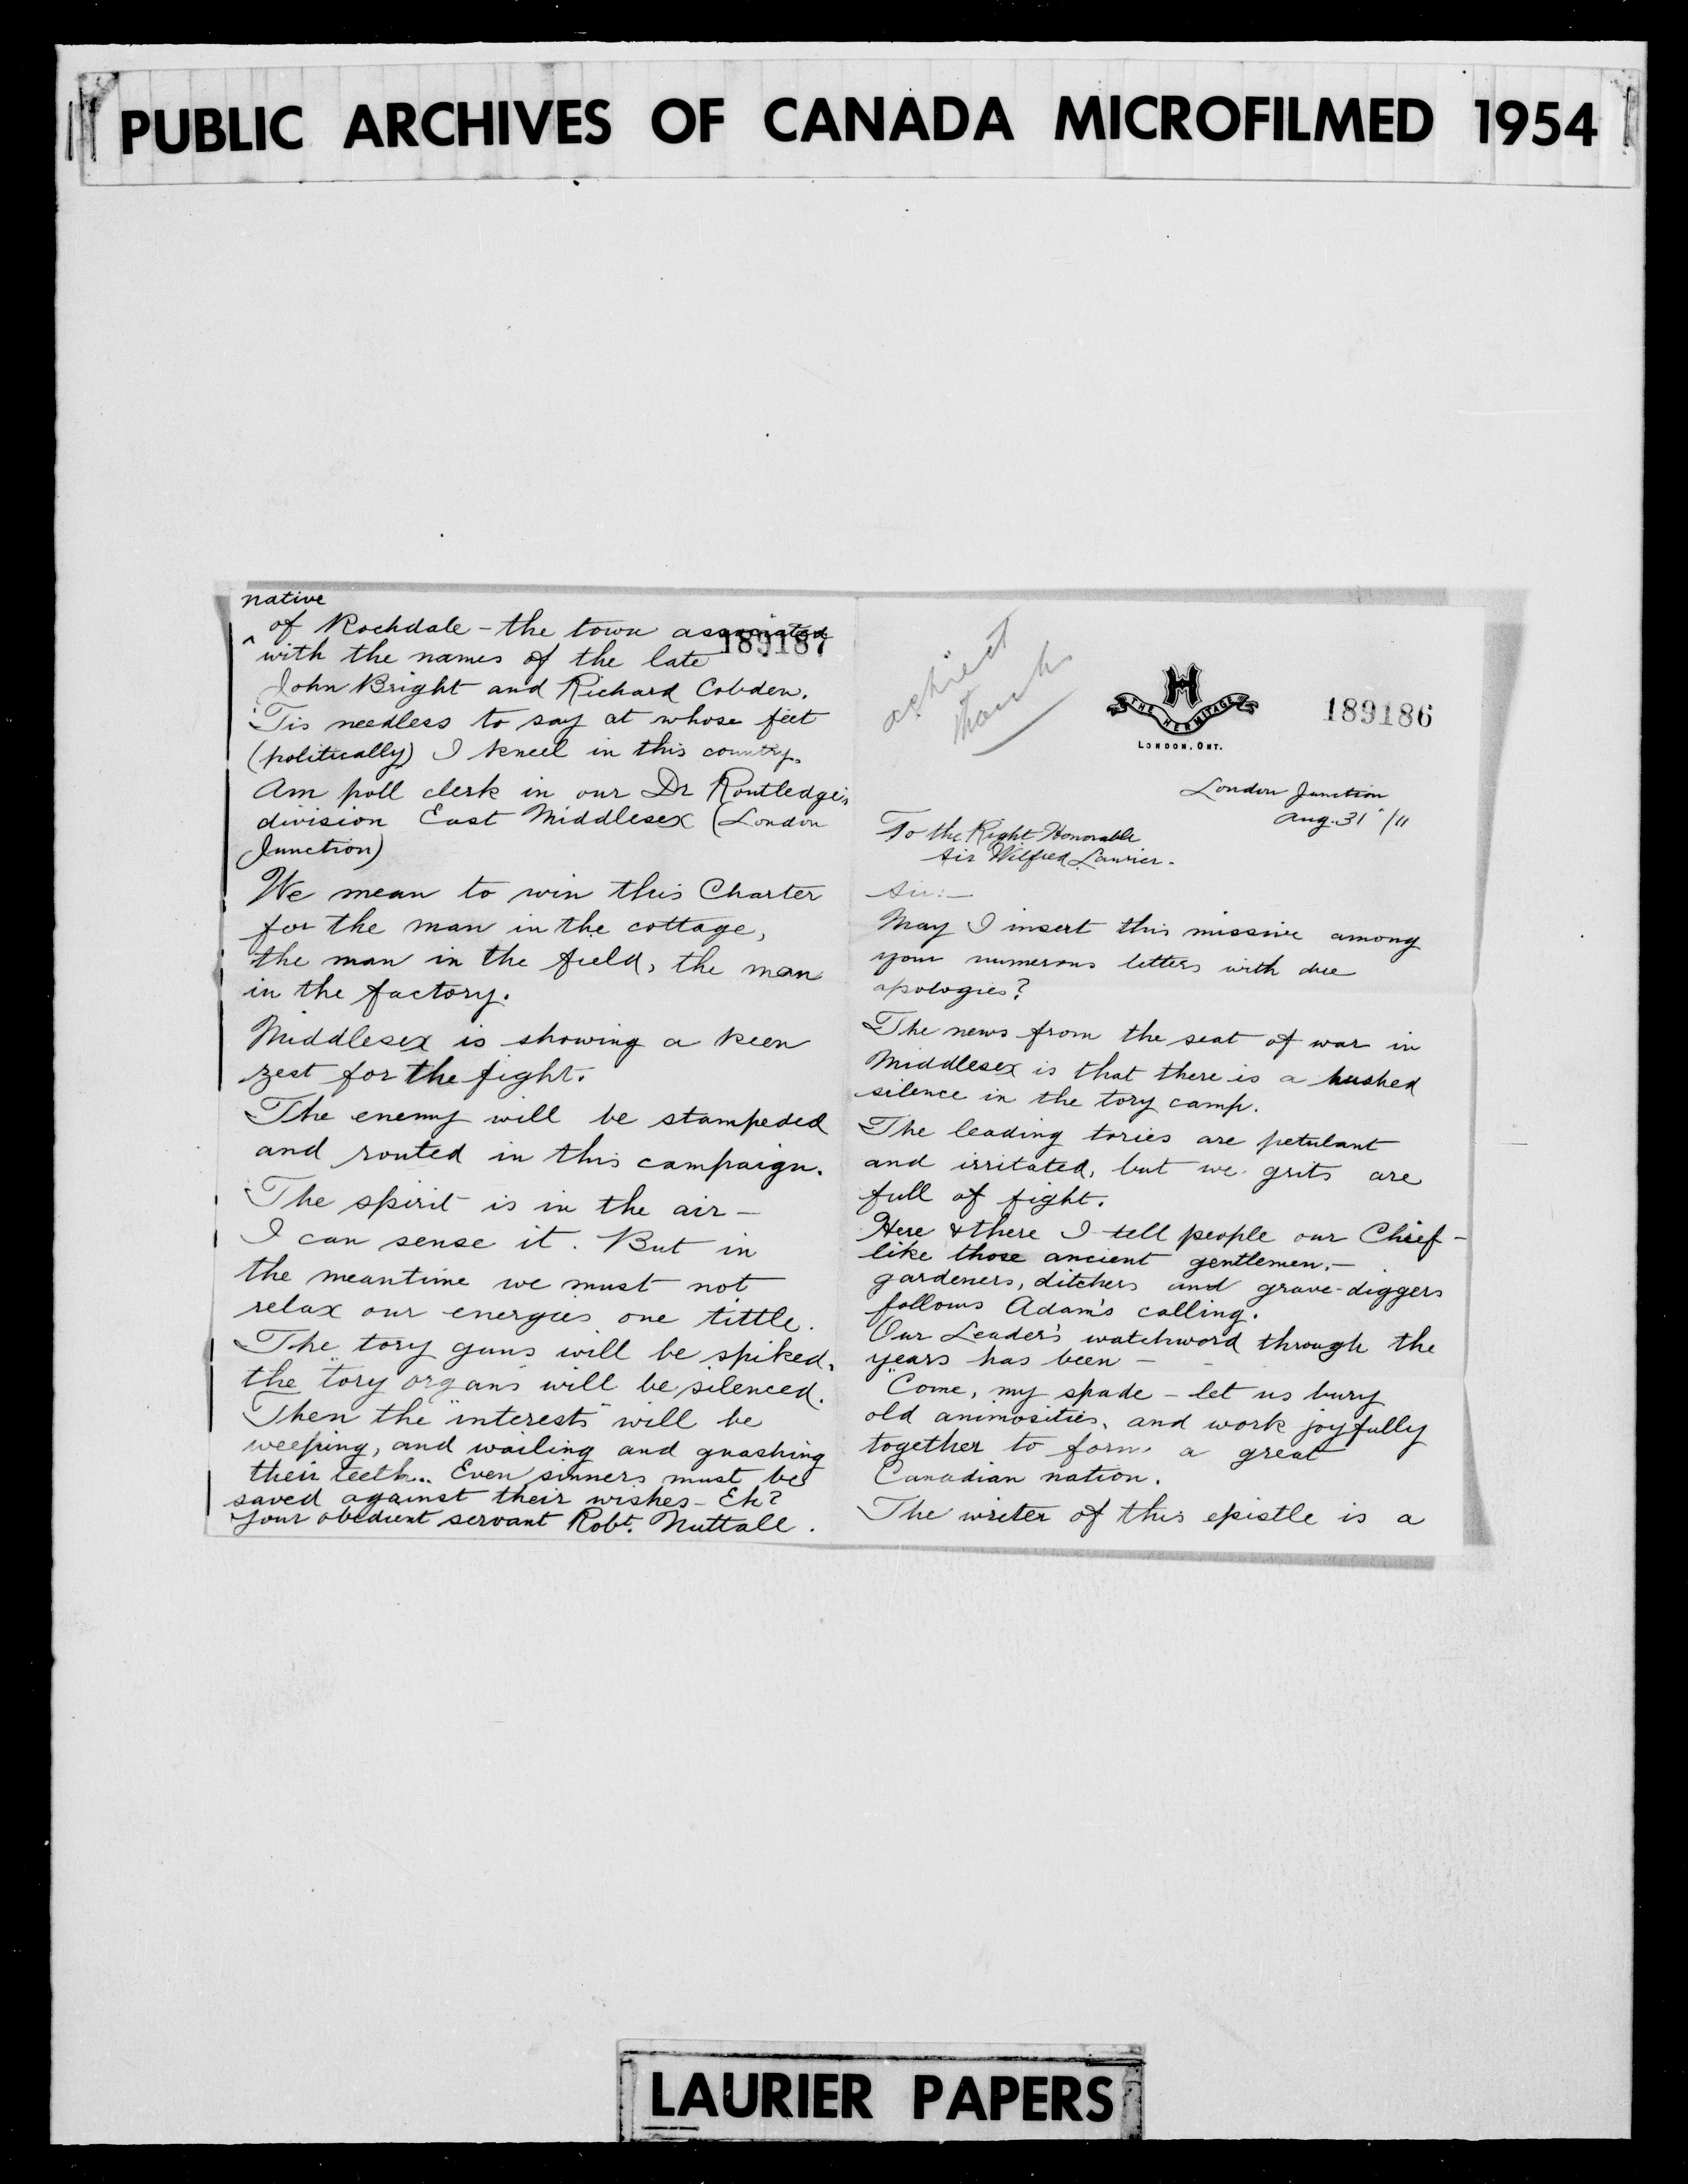 PUBLIC ARCHIVES OF CANADA MICROFILMED 1954
THE HERMITAGE
LONDON, ONT.
189186
thank
London Junction
Aug. 31 /11
To the Right Honorable
Sir Wilfred Laurier.
Sir:—
May I insert this missive among
your numerous letters with due
apologies?
The news from the seat of war in
Middlesex is that there is a hushed
silence in the tory camp.
The leading tories are petulant
and irritated, but we grits are
full of fight.
Here & there I tell people our Chief –
like those ancient gentlemen, –
gardeners, ditchers and grave-diggers
follows Adam's calling.
Our Leader's watchword through the
years has been –
"Come, my spade – let us bury
old animosities, and work joyfully
together to form a great
Canadian nation.
The writer of this epistle is a
189187
native
^ of Rochdale – the town associated
with the names of the late
John Bright and Richard Cobden.
'Tis needless to say at whose feet
(politically) I kneel in this country.
Am poll clerk in our Dr Routledge's
division East Middlesex (London
Junction)
We mean to win this Charter
for the man in the cottage,
the man in the field, the man
in the factory.
Middlesex is showing a keen
zest for the fight.
The enemy will be stampeded
and routed in this campaign.
The spirit is in the air –
I can sense it. But in
the meantime we must not
relax our energies one tittle.
The tory guns will be spiked,
the "tory organs will be silenced.
Then the "interests" will be
weeping, and wailing and gnashing
their teeth... Even sinners must be
saved against their wishes – Eh?
Your obedient servant Robt. Nuttall.
LAURIER PAPERS